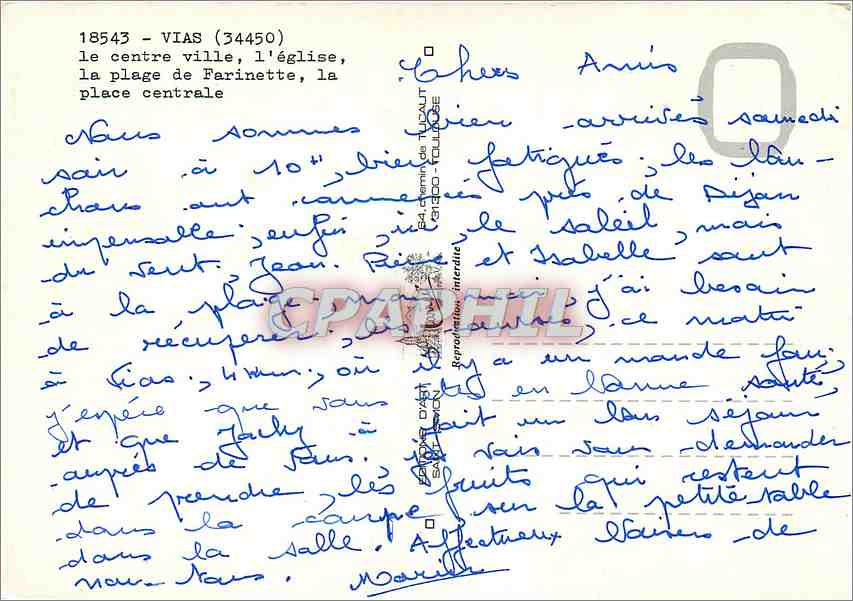 18543 - VIAS (34450)
le centre ville, l'église,
la plage de Farinette, la
place centrale
Chers Amis
Nous sommes bien arrivés samedi
soir à 10H, bien fatigués, les bou-
chons ont commencés près de Dijon
impensable, enfin, ici, le soleil, mais
du vent, Jean-Pierre et Isabelle sont
à la plage, moi, j'ai besoin
de récupérer, les courses, ce matin
à Vias, 4 km, où il y a un monde fou,
j'espère que vous êtes en bonne santé,
et que Jacky à fait un bon séjour
auprès de vous. je vais vous demander
de prendre, les fruits qui restent
dans la coupe sur la petite table
dans la salle. Affectueux baisers de
nous tous.
64, chemin de TUCAUT
31300 - TOULOUSE
Reproduction interdite
EDITIONS D'ART
CPAPHIL